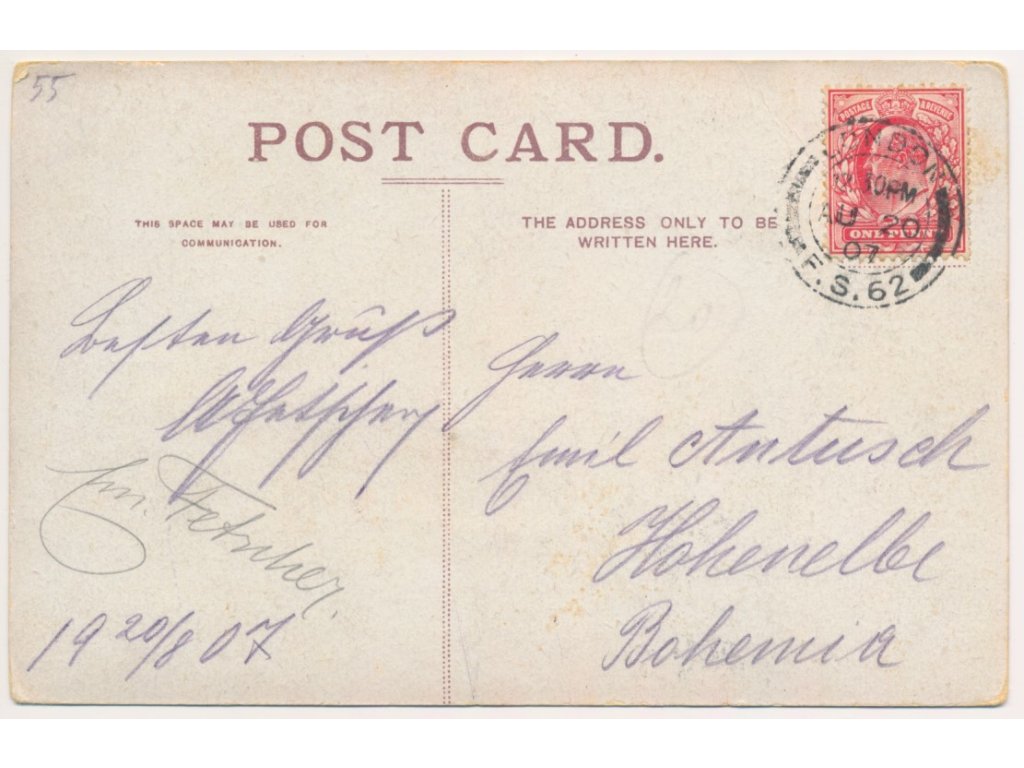 55
POST CARD.
THIS SPACE MAY BE USED FOR
COMMUNICATION.
THE ADDRESS ONLY TO BE
WRITTEN HERE.
POSTAGE & REVENUE
ONE PENNY
LONDON
10PM
AU 20
07
F.S. 62
Besten Gruß
Em. Fetscher.
19 20/8 07
Herrn
Emil Antusch
Hohenelbe
Bohemia